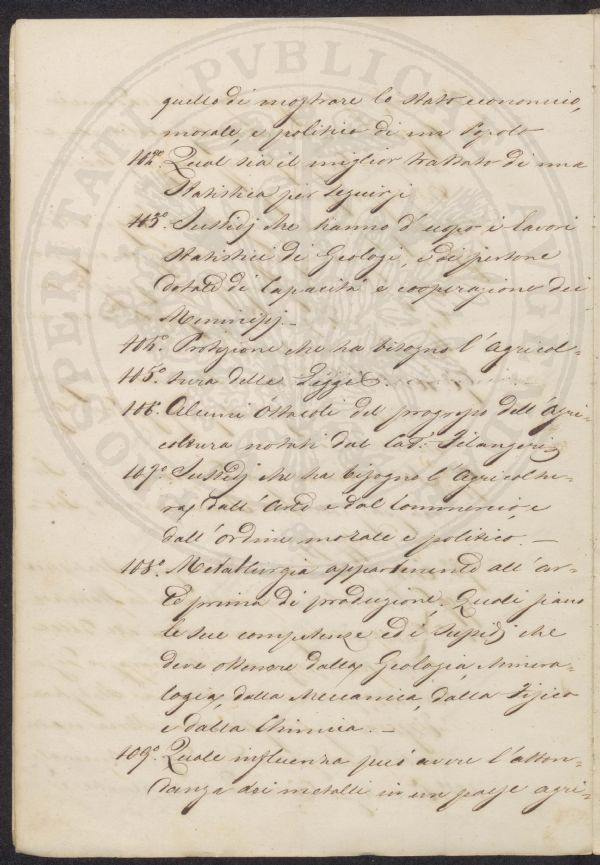 quello di mostrare lo stato economico,
morale, e politico di un Popolo
102.° Qual sia il miglior trattato di una
Statistica per seguirsi
103.° Sussidj che hanno d'uopo i lavori
statistici di Geologi, e di persone
dotate di Capacità e cooperazione dei
Municipj. —
104.° Protezione che ha bisogno l'Agricol-
105.° tura dalle Leggi.
106.° Alcuni Ostacoli del progresso dell'Agri-
coltura notati dal Cav. Filangeri
107.° Sussidj che ha bisogno l'Agricoltu-
ra, dall'Arte e dal Commercio, e
dall'Ordine morale e politico. —
108.° Metallurgia appartenente all'ar-
te prima di produzione. Quali siano
le sue competenze ed i Sussidj che
deve ottenere dalla Geologia, Minera-
logia, dalla Meccanica, dalla Fisica
e dalla Chimica. —
109.° Quale influenza può avere l'abbon-
danza dei metalli in un paese agri-
PROSPERITATI PVBLICAE AVGENDAE